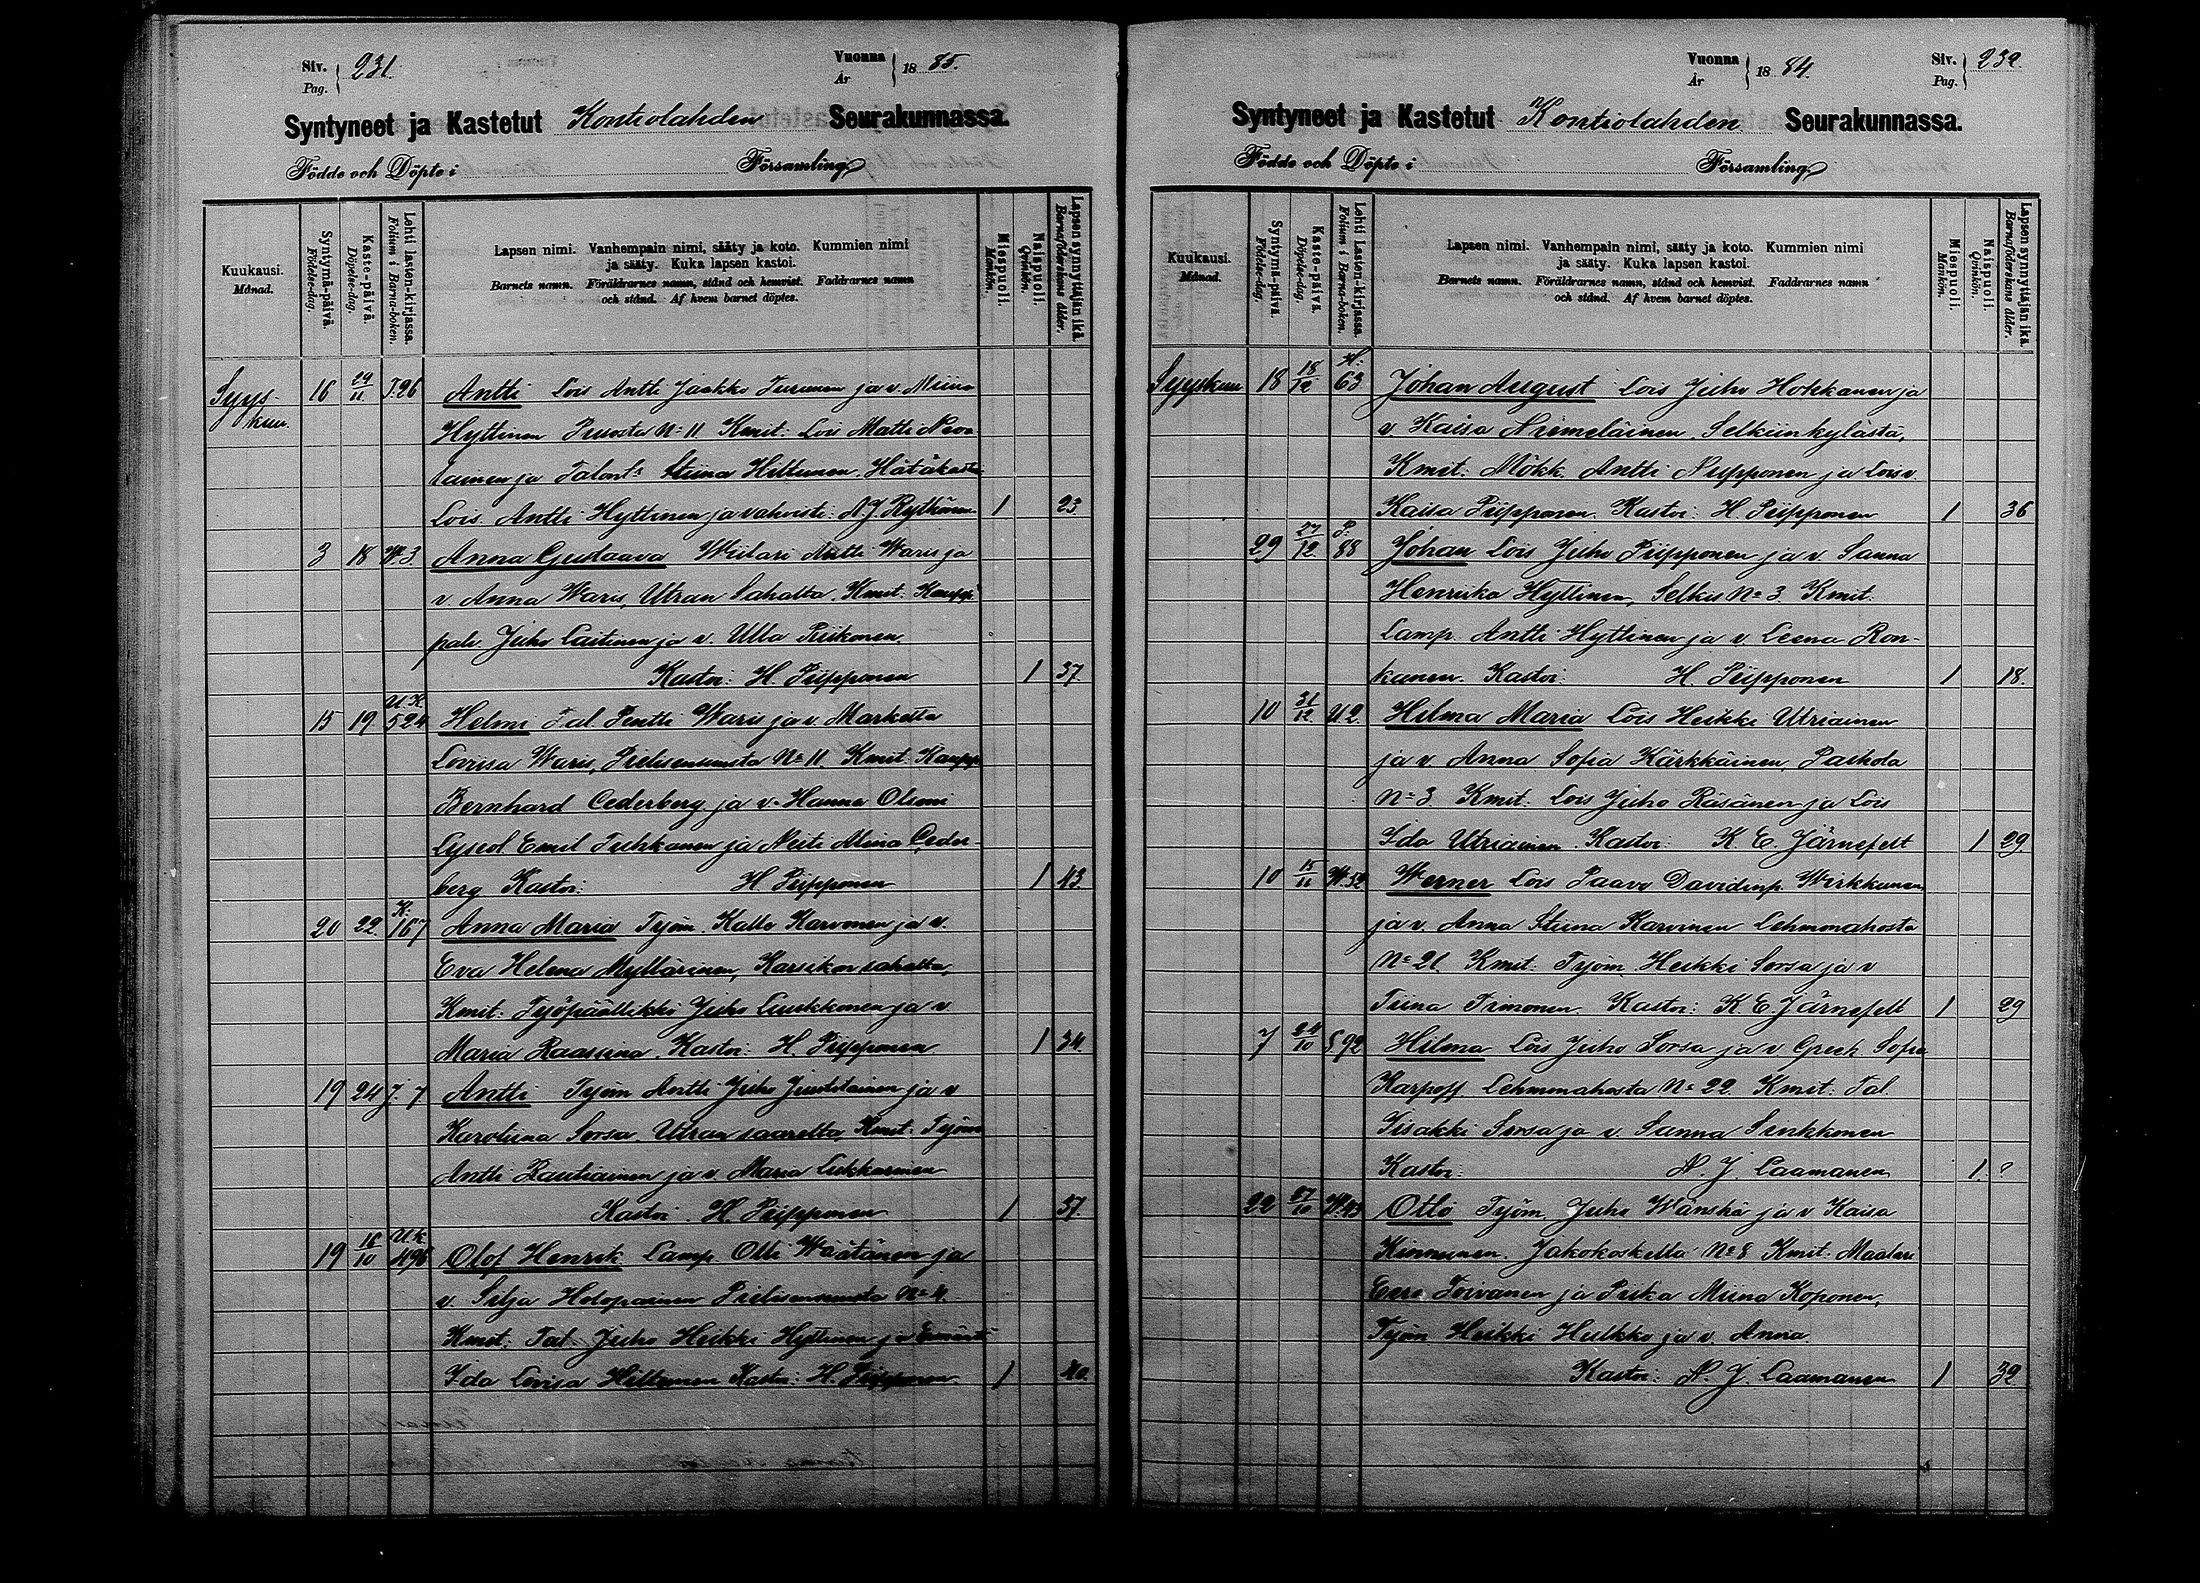 Siv. 231.
Pag.
Vuonna 1885.
År
Syntyneet ja Kastetut Kontiolahden Seurakunnassa.
Födde och Döpte i Församling
Kuukausi.
Månad.
Syntymä-päivä.
Födelse-dag.
Kaste-päivä.
Döpelse-dag.
Lehti Lasten-kirjassa.
Folium i Barna-boken.
Lapsen nimi. Vanhempain nimi, sääty ja koto. Kummien nimi
ja sääty. Kuka lapsen kastoi.
Barnets namn. Föräldrarnes namn, stånd och hemvist. Faddrarnes namn
och stånd. Af hvem barnet döptes.
Miespuoli.
Mankön.
Naispuoli.
Qvinkön.
Lapsen synnyttäjän ikä.
Barnaföderskans ålder.
Syys- 16 29/11 T.26 Antti Lois Antti Jaakko Turunen ja v. Miina
kuu. Hyttinen Puso No 11 Kmit: Lois Matti
tainen ja Stiina Hiltunen Hätäkaste
Lois Antti Hyttinen ja vahvisti: A J. Rytkönen 1 23
3 18 W.3 Anna Gustaava Wiilari Antti Waris ja
v. Anna Waris, Utran Sahalta, Kmit: Kaupp
palv. Juho Laitinen ja v. Ulla Piikonen.
Kastoi: H. Piipponen 1 37.
15 19 U.K. 524 Helmi Tal. Pentti Waris ja v. Marketta
Lovisa Waris, Pielisensuusta No 11. Kmit: Kaupp
Bernhard Cederberg ja v. Hanna Olsoni
Lyseol Emil Tuhkanen ja Neiti Miina Ceder-
berg Kastoi: H Piipponen 1 43.
20 22. K: 167 Anna Maria Työm. Kalle Karvonen ja v.
Eva Helena Myllärinen, Karsikon sahalta,
Kmit: Työpäällikkö Juho Luukkonen ja v
Maria Raassina. Kastoi: H. Piipponen 1 34.
19 24 J. 7 Antti Työm Antti Juho Juutilainen ja v
Karoliina Sorsa Utran saarelta Kmit: Työm
Antti Rautiainen ja v. Maria Lukkarinen
Kastoi H. Piipponen 1 37.
19 16/10 U.K. 496 Olof Henrik Lamp. Olli Wäätänen ja
v. Silja Holopainen Pielisensuusta No 4.
Kmit: Tal Juho Heikki Hyttinen ja Emäntä
Ida Lovisa Hiltunen Kastoi: H. Piipponen 1 40.
Vuonna 1884.
År
Siv. 232.
Pag.
Syntyneet ja Kastetut Kontiolahden Seurakunnassa.
Födde och Döpte i Församling
Kuukausi.
Månad.
Syntymä-päivä.
Födelse-dag.
Kaste-päivä.
Döpelse-dag.
Lehti Lasten-kirjassa.
Folium i Barna-boken.
Lapsen nimi. Vanhempain nimi, sääty ja koto. Kummien nimi
ja sääty. Kuka lapsen kastoi.
Barnets namn. Föräldrarnes namn, stånd och hemvist. Faddrarnes namn
och stånd. Af hvem barnet döptes.
Miespuoli.
Mankön.
Naispuoli.
Qvinkön.
Lapsen synnyttäjän ikä.
Barnaföderskans ålder.
Syyskuu 18 18/12 H: 63 Johan August Lois Juho Hokkanen ja
v. Kaisa Niemeläinen, Selkiinkylästä,
Kmit: Mökk. Antti Piipponen ja Lois v.
Kaisa Piipponen. Kastoi: H. Piipponen 1 36
29 27/12. P. 88 Johan Lois Juho Piipponen ja v. Sanna
Henriika Hyttinen, Selkie No 3. Kmit.
Lamp. Antti Hyttinen ja v. Leena Ron-
kanen. Kastoi: H. Piipponen 1 18.
10 31/12 U 2. Hilma Maria Lois Heikki Utriainen
ja v. Anna Sofia Kärkkäinen, Paihola
No 3 Kmit: Lois Juho Räsänen ja Lois
Ida Utriainen. Kastoi: K. E. Järnefelt 1 29.
10 15/11 W.52 Werner Lois Paavo Davidinp. Wirkkunen
ja v. Anna Stiina Karvinen Lehmonahosta
No 21. Kmit: Työm. Heikki Sorsa ja v
Tiina Timonen. Kastoi: K. E. Järnefelt 1 29
7 24/10 S 92 Hilma Lois Juho Sorsa ja v. Greek Sofia
Karpoff Lehmonahosta No 22. Kmit: Tal.
Iisakki Sorsa ja v. Sanna Sinkkonen
Kastoi: A. J. Laamanen 1. ?
22 27/10 W.43 Otto Työm. Juho Wänskä ja v. Kaisa
Kinnunen. Jakokoskelta No 8 Kmit: Maalari
Eero Toivanen ja Piika Miina Koponen,
Työm Heikki Hulkko ja v. Anna
Kastoi: A. J. Laamanen 1 32